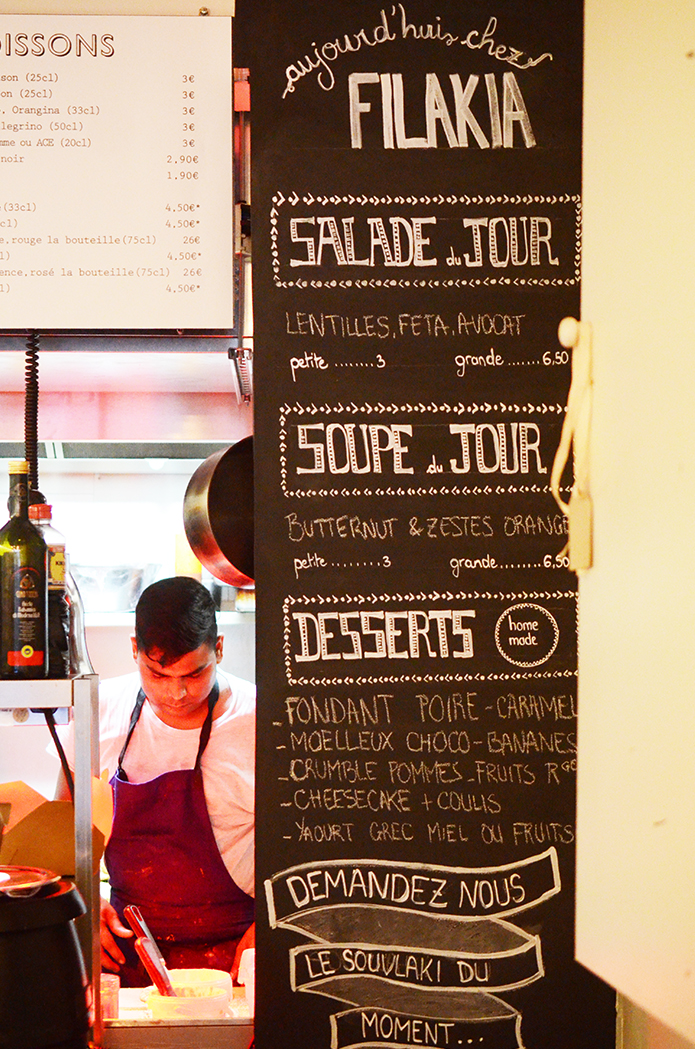 OISSONS
son (25cl) 3€
on (25cl) 3€
. Orangina (33cl) 3€
legrino (50cl) 3€
mme ou ACE (20cl) 3€
noir 2,90€
1.90€
(33cl) 4,50€*
cl) 4,50€*
e,rouge la bouteille(75cl) 26€
l) 4,50€*
ence,rosé la bouteille(75cl) 26€
l) 4,50€*
aujourd'hui chez
FILAKIA
SALADE du JOUR
LENTILLES, FETA, AVOCAT
petite ........3 grande .......6,50
SOUPE du JOUR
BUTTERNUT & ZESTES ORANGE
petite ........3 grande ........6,50
DESSERTS home made
- FONDANT POIRE - CARAMEL
- MOELLEUX CHOCO - BANANES
- CRUMBLE POMMES - FRUITS RGE
- CHEESECAKE + COULIS
- YAOURT GREC MIEL OU FRUITS
DEMANDEZ NOUS
LE SOUVLAKI DU
MOMENT...